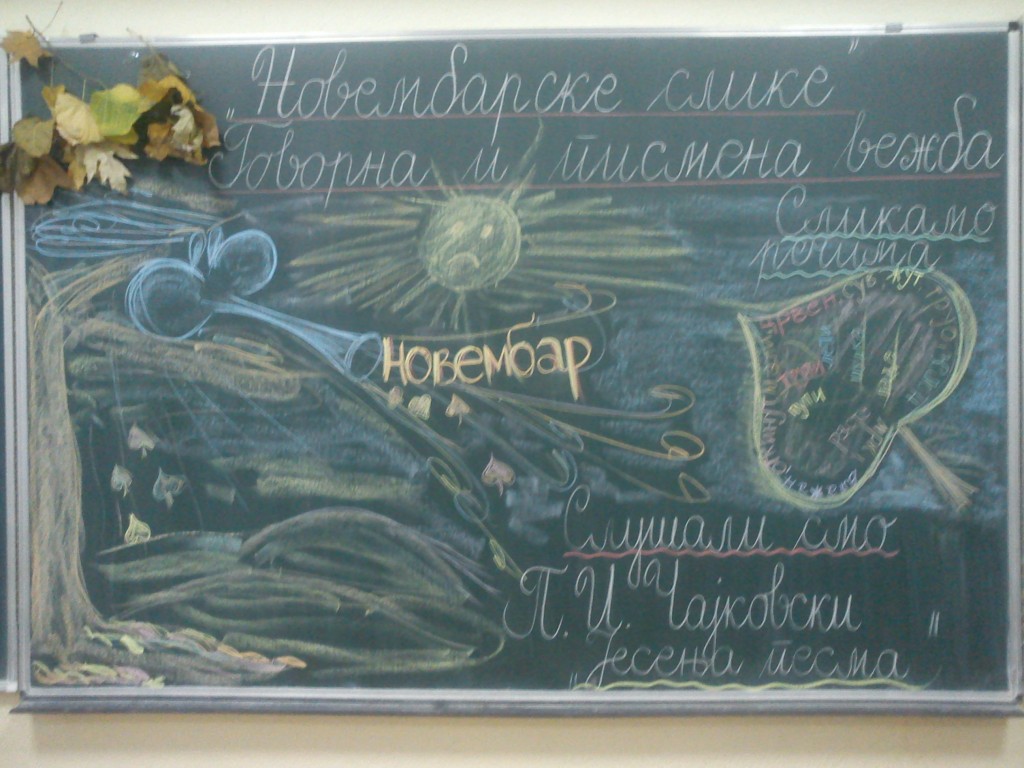 „Новембарске слике”
Говорна и писмена вежба
Сликамо
речима
НОВЕМБАР
црвен сув жут
Слушали смо
П. И. Чајковски
„Јесења песма”